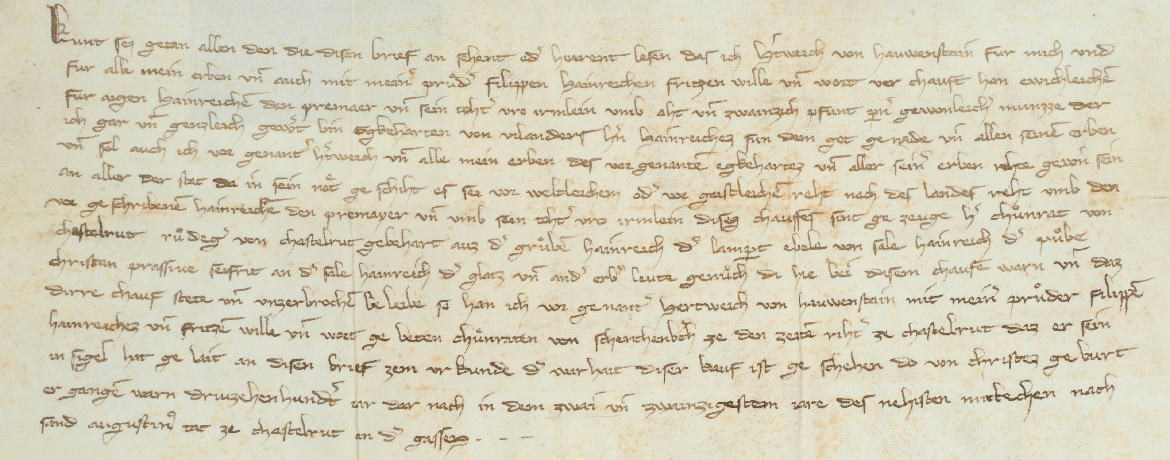 Kunt sei getan allen den die disen brief an sehent od' hoerent lesen das ich h'tweich von hauwenstain fur mich und
fur alle mein erben vn̄ auch mit mein' průd' filippen hainreichen fritzen wille vn̄ wort ver chauft han ewichleichē
fur aigen hainreichē den premaer vn̄ sein toht' vro irmlein umb aht vn̄ zwainzich pfunt pn' gewonleich' munzze der
ich gar vn̄ genzleich gew't bin egkeharten von vilanders h'n hainreichez sun dem got genade vn̄ allen seinē erben
vn̄ sol auch ich vor genant' h'tweich vn̄ alle mein erben des vor genantē egkehartez vn̄ aller sein' erben rehte gew'n sein
an aller der stat da in sein not ge schiht es sei vor weltleichem od' vor gaistleichē reht nach des landes reht umb den
vor ge schribenē hainreichē den premayer vn̄ umb sein toht' vro irmlein disez chauffes sint ge zeuge h' chůnrat von
chastelrut růdeg' von chastelrut gebehart auz d' grůbē hainreich d' lampt ebele von sale hainreich d' půbe
christan prassive seifrit an d' sale hainreich d' glatz vn̄ and' erb' leute genůch di hie bei disem chaufe warn vn̄ daz
dirre chauf stete vn̄ unzerbrochē be leibe so han ich vor genant' hertweich von hauwenstain mit mein' průder filippē
hainreichez vn̄ fritzē wille vn̄ wort ge beten chůnraten von schenchenb'ch ze den zeitē riht' ze chastelrut daz er sein
in sigel hat ge lait an disen brief zem urkunde d' warhait diser kauf ist ge schehen do von christez ge burt
er gangē warn driuzehenhund't iar dar nach in dem zwai vn̄ zwainzigestem iare des nehsten mittechen nach
sand augustin' tac ze chastelrut an d' gassen - - -